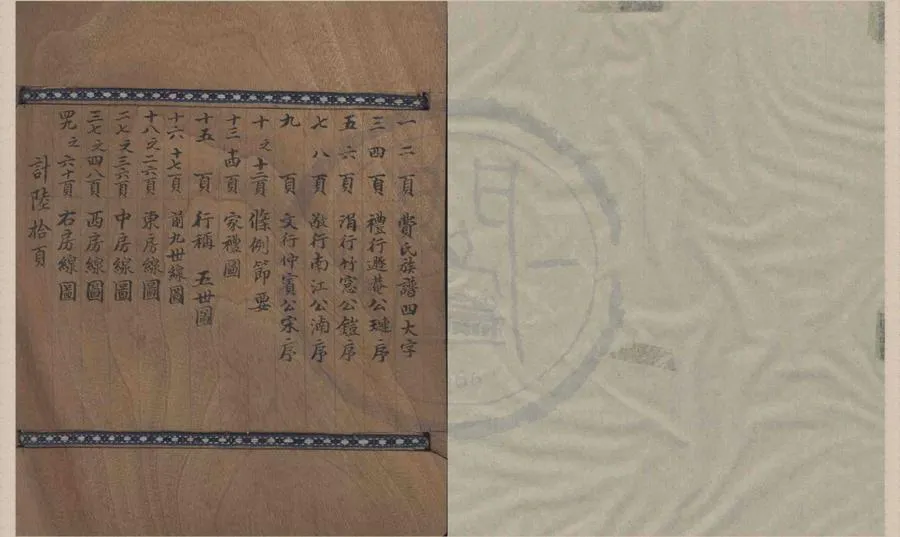 一二頁 費氏族譜四大字
三四頁 禮行遯菴公璉序
五六頁 涓行竹窓公鎧序
七八頁 敬行南江公湳序
九頁 文行仲賓公宋序
十之十二頁 條例節要
十三十四頁 家禮圖
十五頁 行稱 五世圖
十六十七頁 前九世線圖
十八之二六頁 東房線圖
二七之三六頁 中房線圖
三七之四八頁 西房線圖
四九之六十頁 右房線圖
計陸拾頁